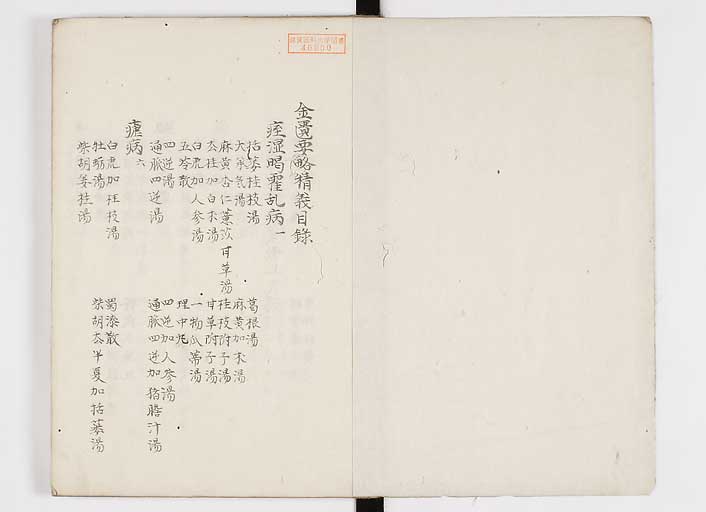 金匱要略精義目錄
痙湿暍霍乱病一
栝蔞桂枝湯
葛根湯
大承気湯
麻黄加朮湯
麻黄杏仁薏苡甘草湯
桂枝附子湯
去桂加白朮湯
甘草附子湯
白虎加人參湯
一物瓜蒂湯
五苓散
理中丸
四逆湯
四逆加人參湯
通脈四逆湯
通脈四逆加猪膽汁湯
瘧病六
白虎加桂枝湯
蜀漆散
牡蛎湯
柴胡去半夏加栝蔞湯
柴胡姜桂湯